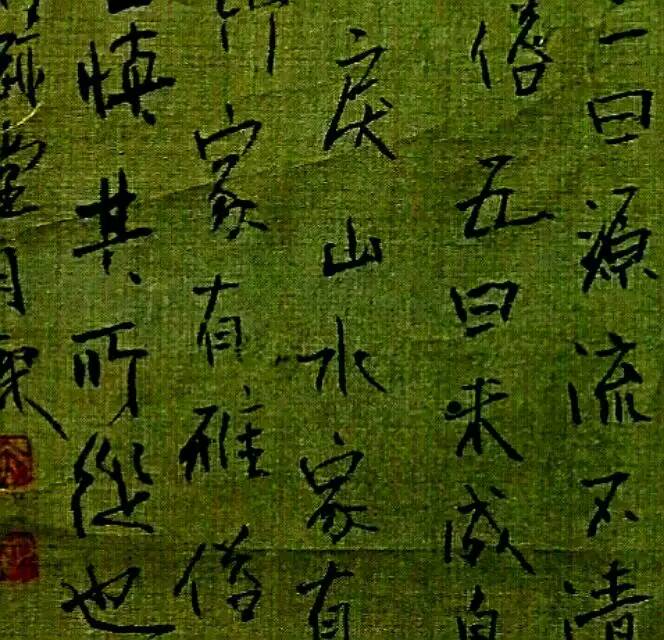 曰源流不清
俗五曰未成自
戾山水家有
家有雅俗
慎其所從也
堂